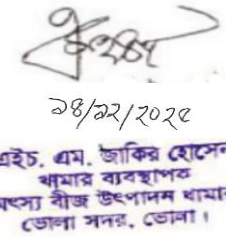 ১৪/১২/২০২৫
এইচ. এম. জাকির হোসেন
খামার ব্যবস্থাপক
মৎস্য বীজ উৎপাদন খামার
ভোলা সদর, ভোলা।